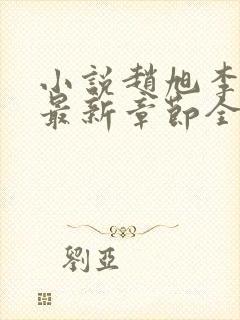 小說趙旭李
最新章節全
劉亞